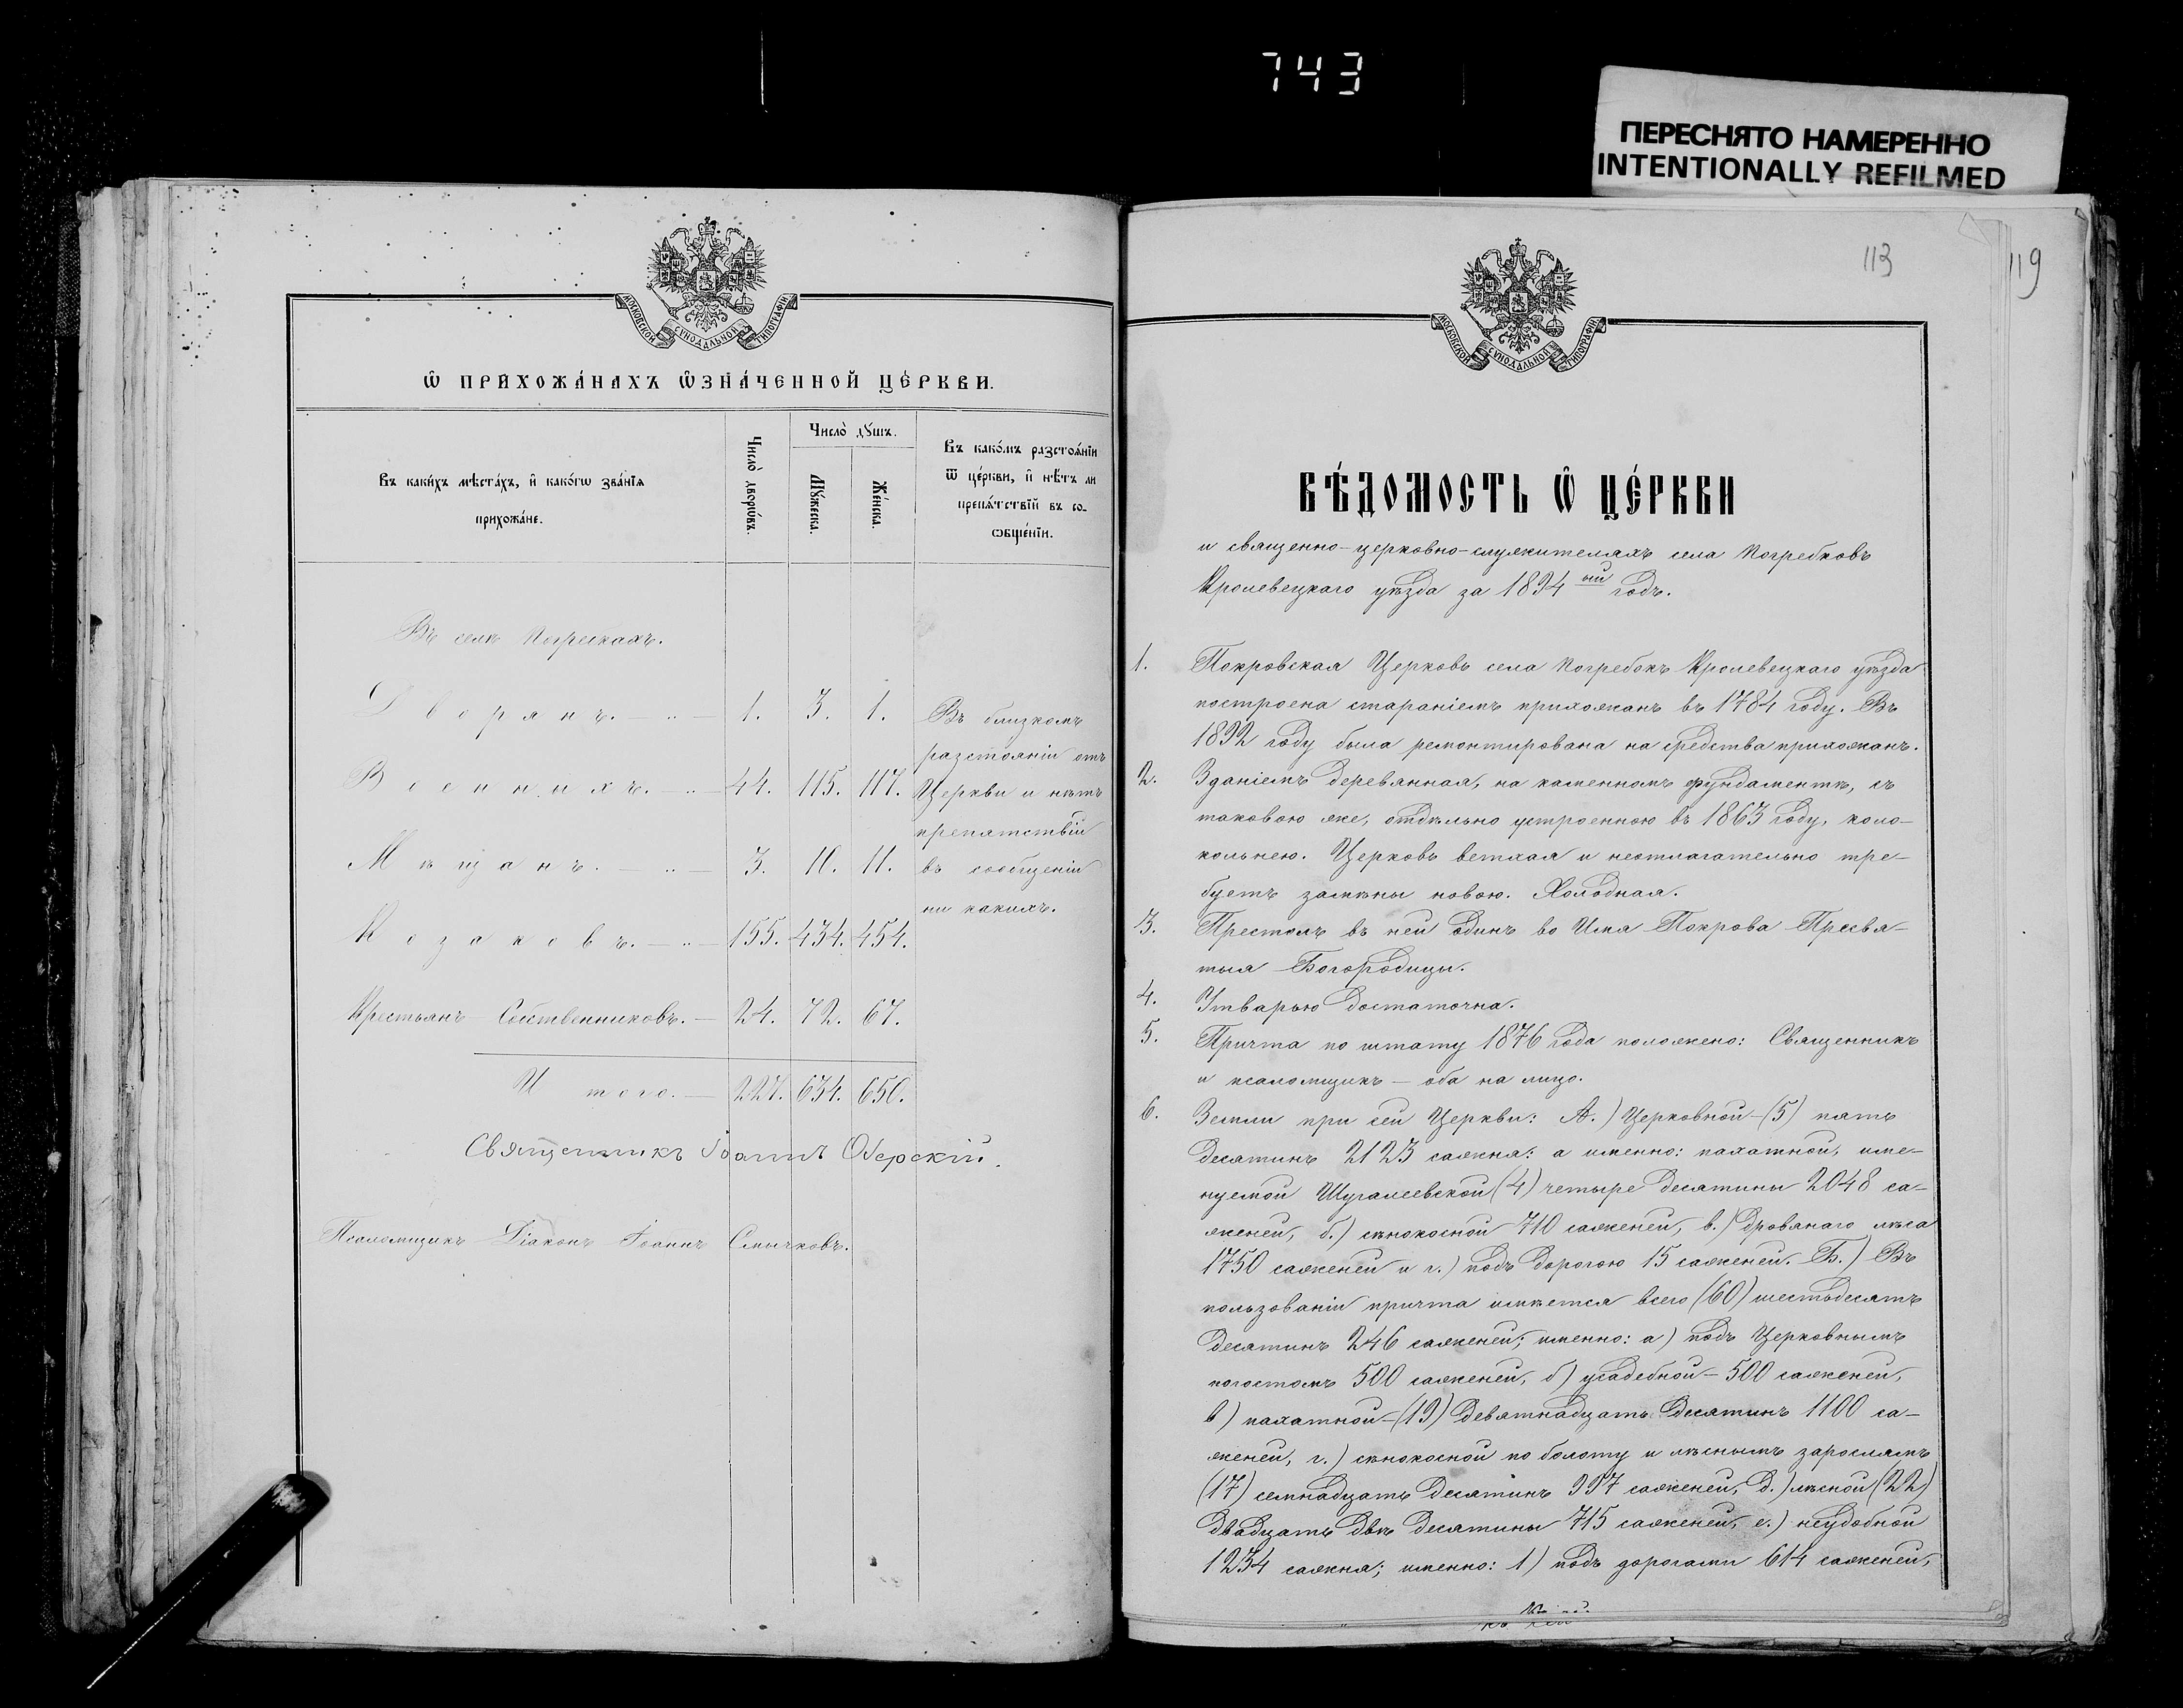 743
ПЕРЕСНЯТО НАМЕРЕННО
INTENTIONALLY REFILMED
МОСКОВСКОЙ СУНОДАЛЬНОЙ ТИПОГРАФІИ
Ѡ ПРИХОЖА́НАХЪ Ѡ҆ЗНА́ЧЕННОЙ ЦЕ́РКВИ.
Въ каки́хъ мѣста́хъ, и҆ како́гѡ зва́нїѧ
прихожа́не.
Число̀ дворѡ́въ.
Число̀ дꙋ́шъ.
Мꙋ́жеска.
Же́нска.
Въ како́мъ разстоѧ́нїи
ѿ це́ркви, и҆ нѣ́тъ ли
препѧ́тствїй въ со-
ѻбще́нїи.
Въ селѣ Погребкахъ.
Дворянъ. — „ — 1. 3. 1.
Военныхъ. — „ — 44. 115. 117.
Мѣщанъ. — „ — 3. 10. 11.
Козаковъ. — „ — 155. 434. 454.
Крестьянъ Собственниковъ. — 24. 72. 67.
Итого. — 227. 634. 650.
Въ близкомъ
разстояніи отъ
Церкви и нѣтъ
препятствій
въ сообщеніи
ни какихъ.
Священникъ Іоаннъ
Псаломщикъ Діаконъ Іоаннъ Смычковъ.
113
119
МОСКОВСКОЙ СУНОДАЛЬНОЙ ТИПОГРАФІИ
ВѢ́ДОМОСТЬ Ѡ҆ ЦЕ́РКВИ
и священно-церковно-служителяхъ села Погребковъ
Кролевецкаго уѣзда за 1894ый годъ.
1. Покровская Церковь села Погребокъ Кролевецкаго уѣзда
построена стараніемъ прихожанъ въ 1784 году. Въ
1892 году была ремонтирована на средства прихожанъ.
2. Зданіемъ деревянная, на каменномъ фундаментѣ, съ
таковою же, отдѣльно устроенною въ 1863 году, коло-
кольнею. Церковь ветхая и неотлагательно тре-
буетъ замѣны новою. Холодная.
3. Престолъ въ ней одинъ во Имя Покрова Пресвя-
тыя Богородицы.
4. Утварью достаточна.
5. Причта по штату 1876 года положено: Священникъ
и псаломщикъ — оба на лицо.
6. Земли при сей Церкви: А.) Церковной — (5) пять
десятинъ 2123 сажня: а именно: пахатной, име-
нуемой Шугалеевской (4) четыре десятины 2048 са-
женей, б.) сѣнокосной 710 саженей, в.) дровянаго лѣса
1750 саженей и г.) подъ дорогою 15 саженей. Б.) Въ
пользованіи причта имѣется всего (60) шестьдесятъ
десятинъ 246 саженей; именно: а) подъ Церковнымъ
погостомъ 500 саженей, б) усадебной — 500 саженей,
в) пахатной — (19) девятнадцать десятинъ 1100 са-
женей, г.) сѣнокосной по болоту и лѣснымъ зарослямъ
(17) семнадцать десятинъ 997 саженей, д.) лѣсной (22)
двадцать двѣ десятины 715 саженей, е.) неудобной
1234 сажня; именно: 1) подъ дорогами 614 саженей,